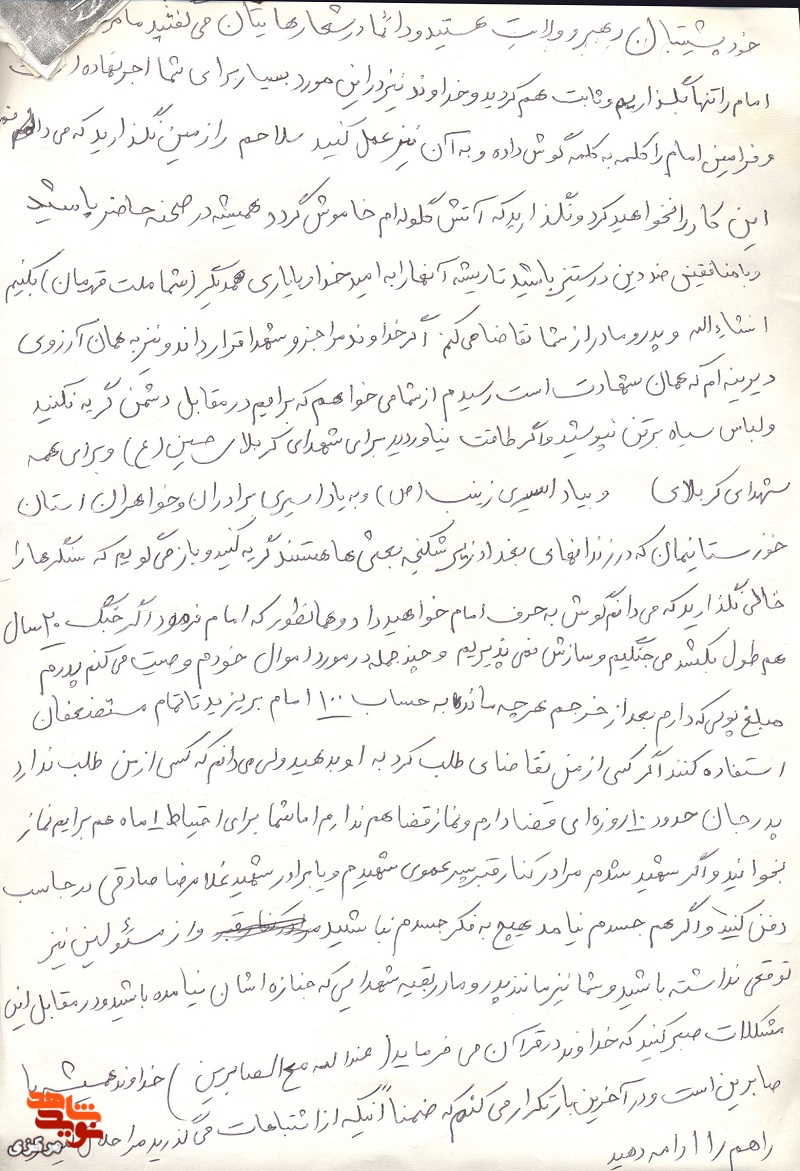 خود پشتیبان رهبر و ولایت هستید و دائما در شعارهایتان می گفتید ما
امام را تنها بگذاریم و ثابت هم کردید و خداوند نیز در این مورد بسیار برای شما اجر نهاده است
و فرامین امام را کلمه به کلمه گوش داده و به آن نیز عمل کنید سلاحم را زمین نگذارید که می دانم
این کار را نخواهید کرد و نگذارید که آتش گلوله ام خاموش گردد همیشه در صحنه حاضر باشید
و با منافقین ضد دین در ستیز باشید تا ریشه آنها را به امید خدا و با یاری همدیگر (شما ملت قهرمان) بکنیم
انشاءالله و پدر و مادر از شما تقاضا می کنم اگر خداوند مرا جزو شهدا قرار داند و نیز به همان آرزوی
دیرینه ام که همان شهادت است رسیدم از شما می خواهم که برایم در مقابل دشمن گریه نکنید
و لباس سیاه بر تن نپوشید و اگر طاقت نیاوردید برای شهدای کربلای حسین (ع) و برای همه
شهدای کربلای و بیاد اسیری زینب (س) و به یاد اسیری برادران و خواهران استان
خوزستانیمان که در زندانهای بغداد زیر شکنجه بعثی ها هستند گریه کنید و باز می گویم که سنگرها را
خالی نگذارید که می دانم گوش به حرف امام خواهید داد و همانطور که امام فرمود اگر جنگ ۲۰ سال
هم طول بکشد می جنگیم و سازش نمی پذیریم و چند جمله در مورد اموال خودم وصیت می کنم پدرم
مبلغ پولی که دارم بعد از خرجم هرچه مانده به حساب ۱۰۰ امام بریزید تا تمام مستضعفان
استفاده کنند اگر کسی از من تقاضای طلب کرد به او بدهید ولی می دانم که کسی از من طلب ندارد
پدر جان حدود ۱۰ روزه ای قضا دارم و نماز قضا هم ندارم اما شما برای احتیاط ۱ ماه هم برایم نماز
بخوانید و اگر شهید شدم مرا در کنار قبر پسر عموی شهیدم و یا برادر شهید غلامرضا صادقی در جاسب
دفن کنید و اگر هم جسدم نیامد هیچ به فکر جسدم نباشید و از مسئولین نیز
توقعی نداشته باشید و شما نیز مانند پدر و مادر بقیه شهدایی که جنازه اشان نیامده باشید و در مقابل این
مشکلات صبر کنید که خداوند در قرآن می فرماید (عندالله مع الصابرین) خداوند همیشه با
صابرین است و در آخرین بار تکرار می کنم که ضمناً اینکه از اشتباهات می گذرید مرا حلال
راهم را ادامه دهید
نوید شاهد
مرکزی